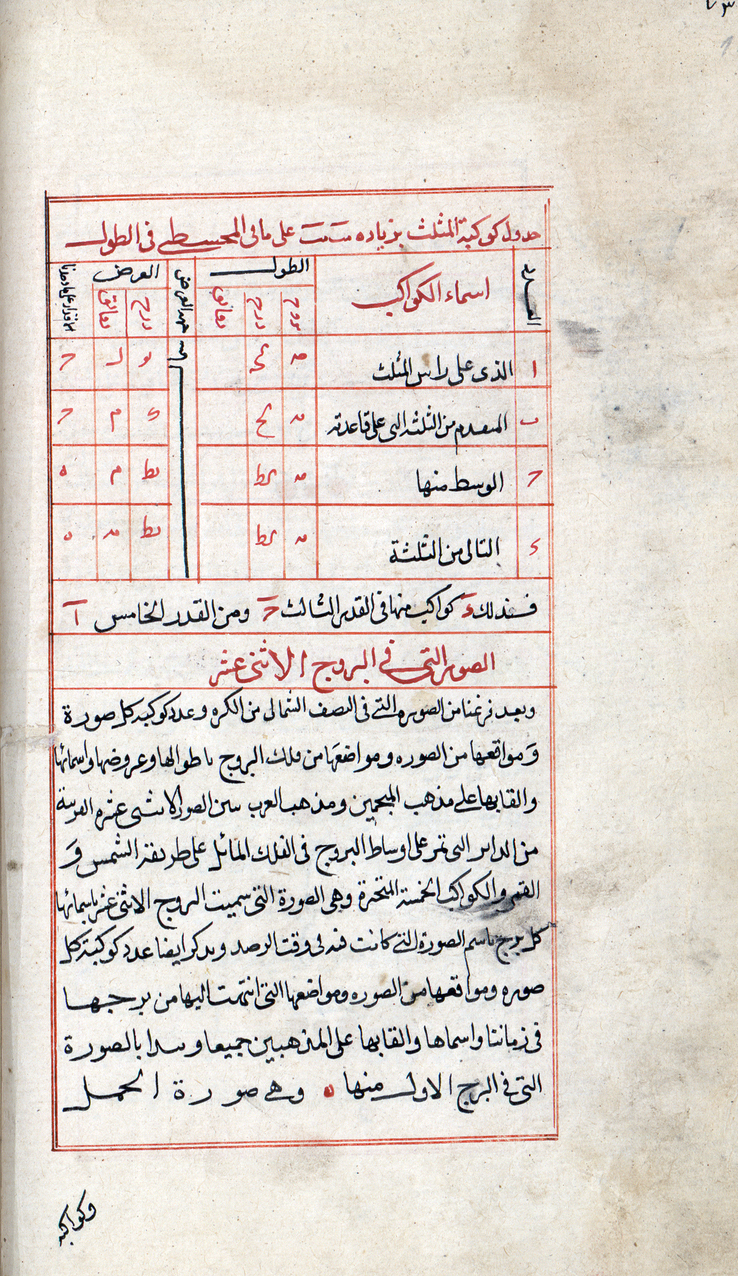 ٧٣
جدول كوكبة المثلث بزياده على ما فى المجسطى فى الطول
العدد اسماء الكواكب الطول جهة العرض العرض
بروج درج دقائق درج دقائق
ا الذى على راس المثلث
ب المتقدم من الثلثة التى على قاعدته
ح الوسط منها
د التالى من الثلثة
فذلك د كواكب منها فى القدر الثالث ح ومن القدر الخامس ا
الصور التى فى البروج الاثنى عشر
وبعد فرغنا من الصوره التى فى النصف الشمالى من الكره وعدد كوكبة كل صورة
ومواقعها من الصوره ومواضعها من فلك البروج باطوالها وعروضها واسمائها
والقابها على مذهب المنجمين ومذهب العرب الصور الاثنى عشره القريبة
من الدائر التى تمر على اوساط البروج فى الفلك المائل على طريقة الشمس و
القمر والكواكب الخمسة المتحيرة وهى الصورة التى سميت البروج الاثنى عشر باسمائها
كل برج باسم الصورة التى كانت فيه فى وقت الرصد ويذكر ايضا عدد كوكبة كل
صوره ومواقعها من الصوره ومواضعها التى انتهت اليها من برجها
فى زماننا واسماها والقابها على المذهبين جميعا وبدا بالصورة
التى فى البرج الاول منها ه وهى صورة الحمل
وكواكبه